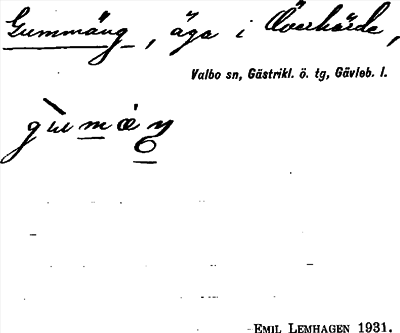 Gummäng, äga i Överhärde,
Valbo sn, Gästrikl. ö. tg, Gävleb. l.
EMIL LEMHAGEN 1931.